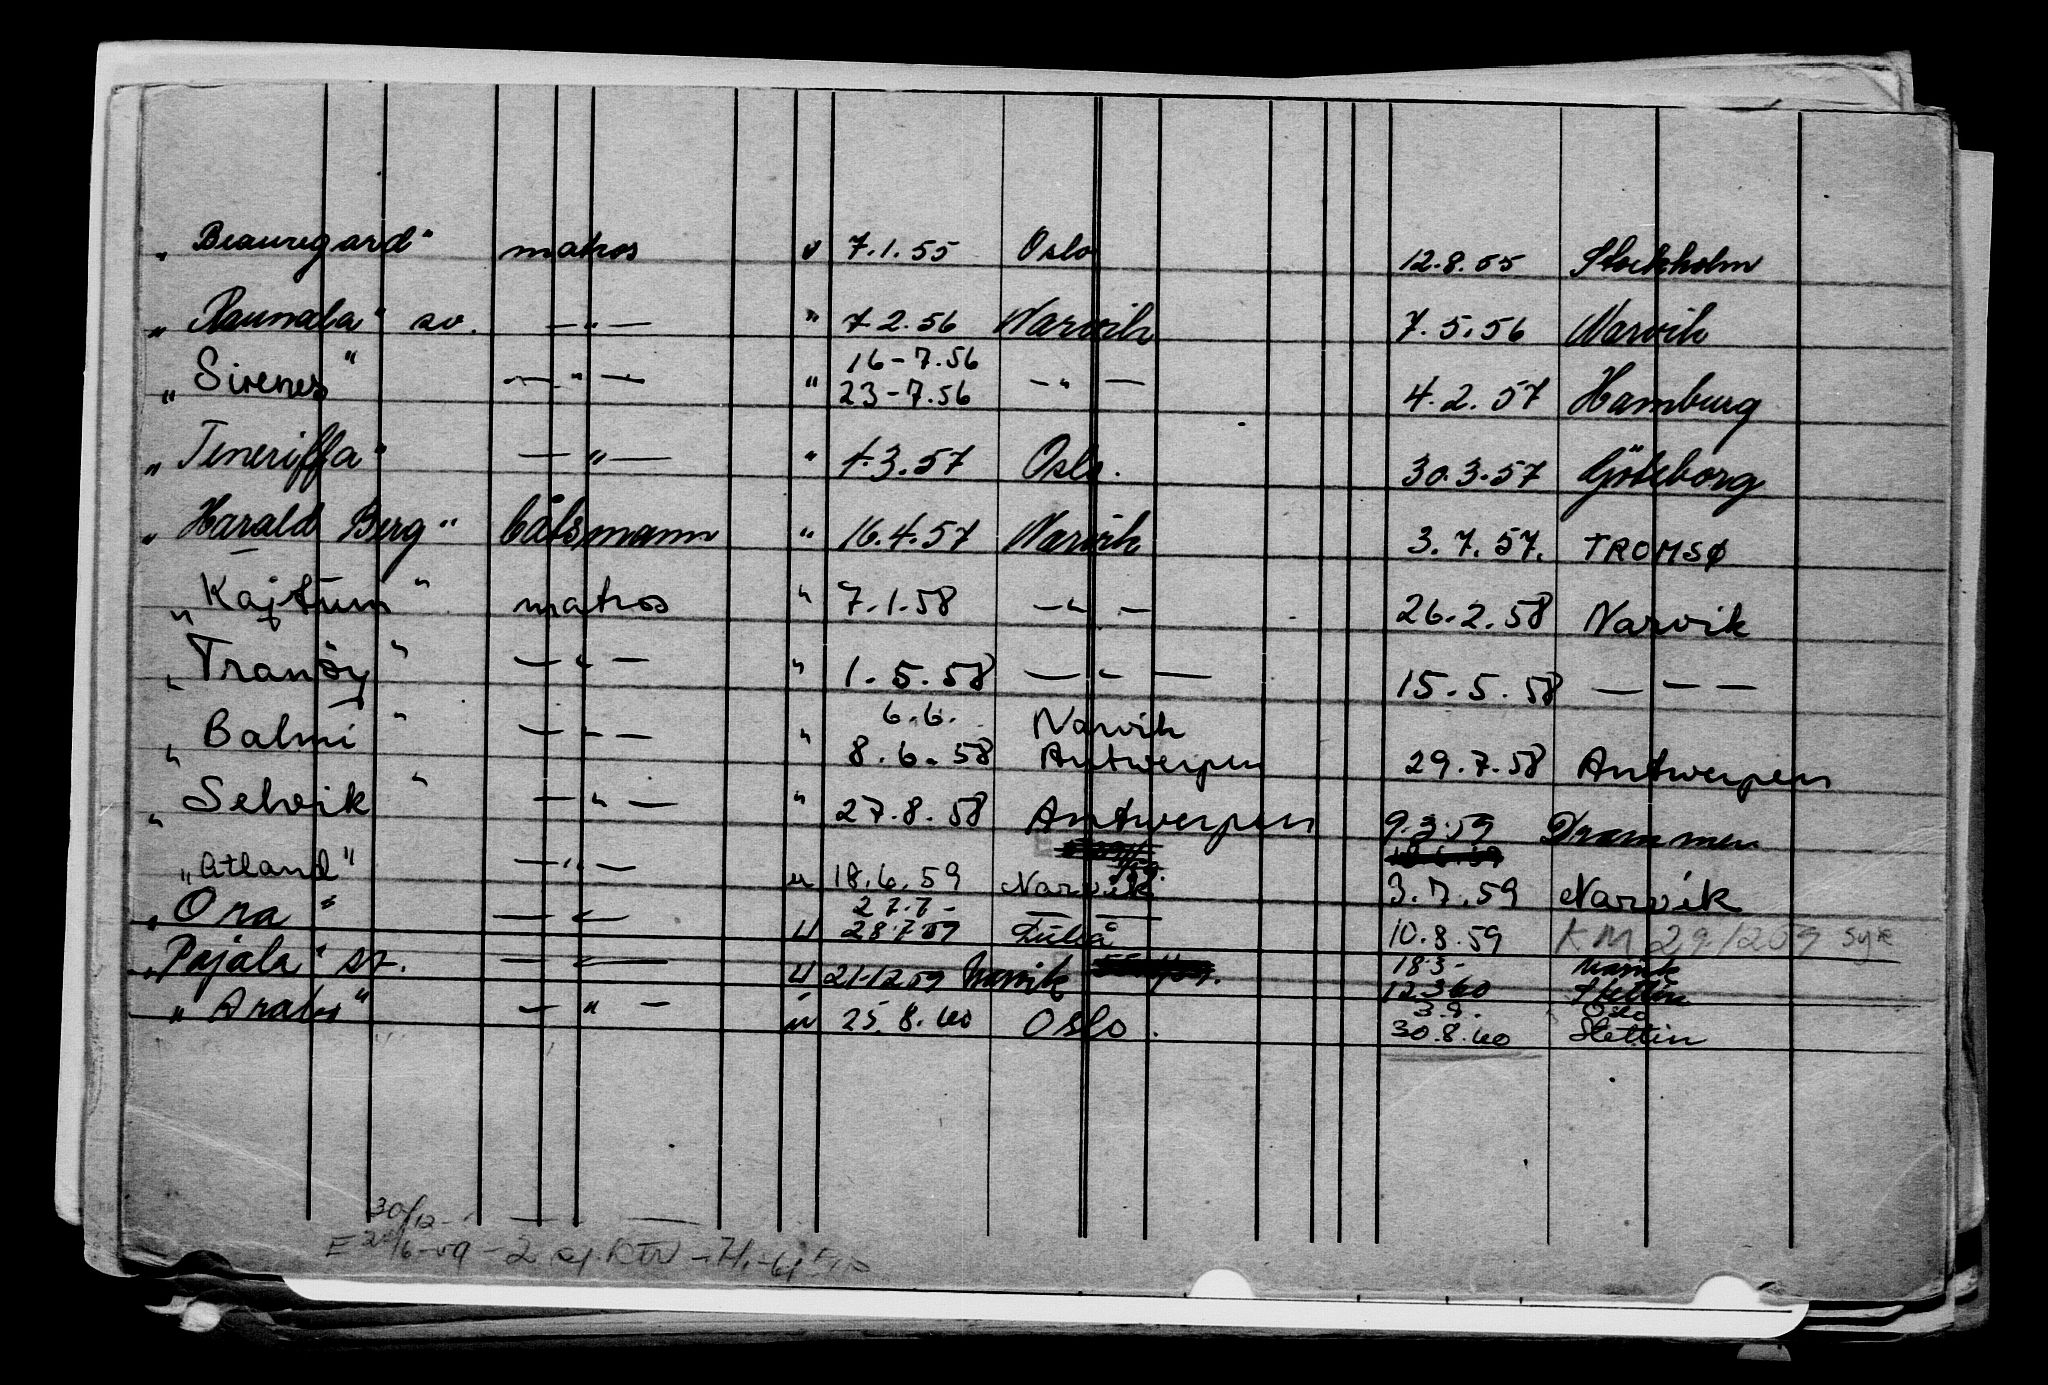 „Beauregard" matros u 7.1.55 Oslo 12.8.55 Stockholm
„Raunala" sv. —"— " 7.2.56 Narvik 7.5.56 Narvik
16-7.56
„Sirenes" —"— " 23-7.56 —"— 4.2.57 Hamburg
„Teneriffa" —"— " 1.3.57 Oslo. 30.3.57 Göteborg
„Harald Berg" båtsmann " 16.4.57 Narvik 3.7.57. TROMSØ
„Kajtum" matros " 7.1.58 —"— 26.2.58 Narvik
„Tranöy" —"— " 1.5.58 —"— 15.5.58 — — —
6.6. Narvik
„Balmi" —"— " 8.6.58 Antwerpen 29.7.58 Antwerpen
„Selvik" —"— " 27.8.58 Antwerpen 9.3.59 Drammen
„Atland" —"— u 18.6.59 Narvik 3.7.59 Narvik
27.7- — —
„Ora" —"— u 28.7.59 Luleå 10.8.59 KM 29.12 59 syk
18.3- Narvik
„Pajala" sv. —"— u 21.12 59 Narvik 12.3 60 Stettin
3.9. Oslo
„Arabs" —"— u 25.8.60 Oslo. 30.8.60 Stettin
30/12- — —